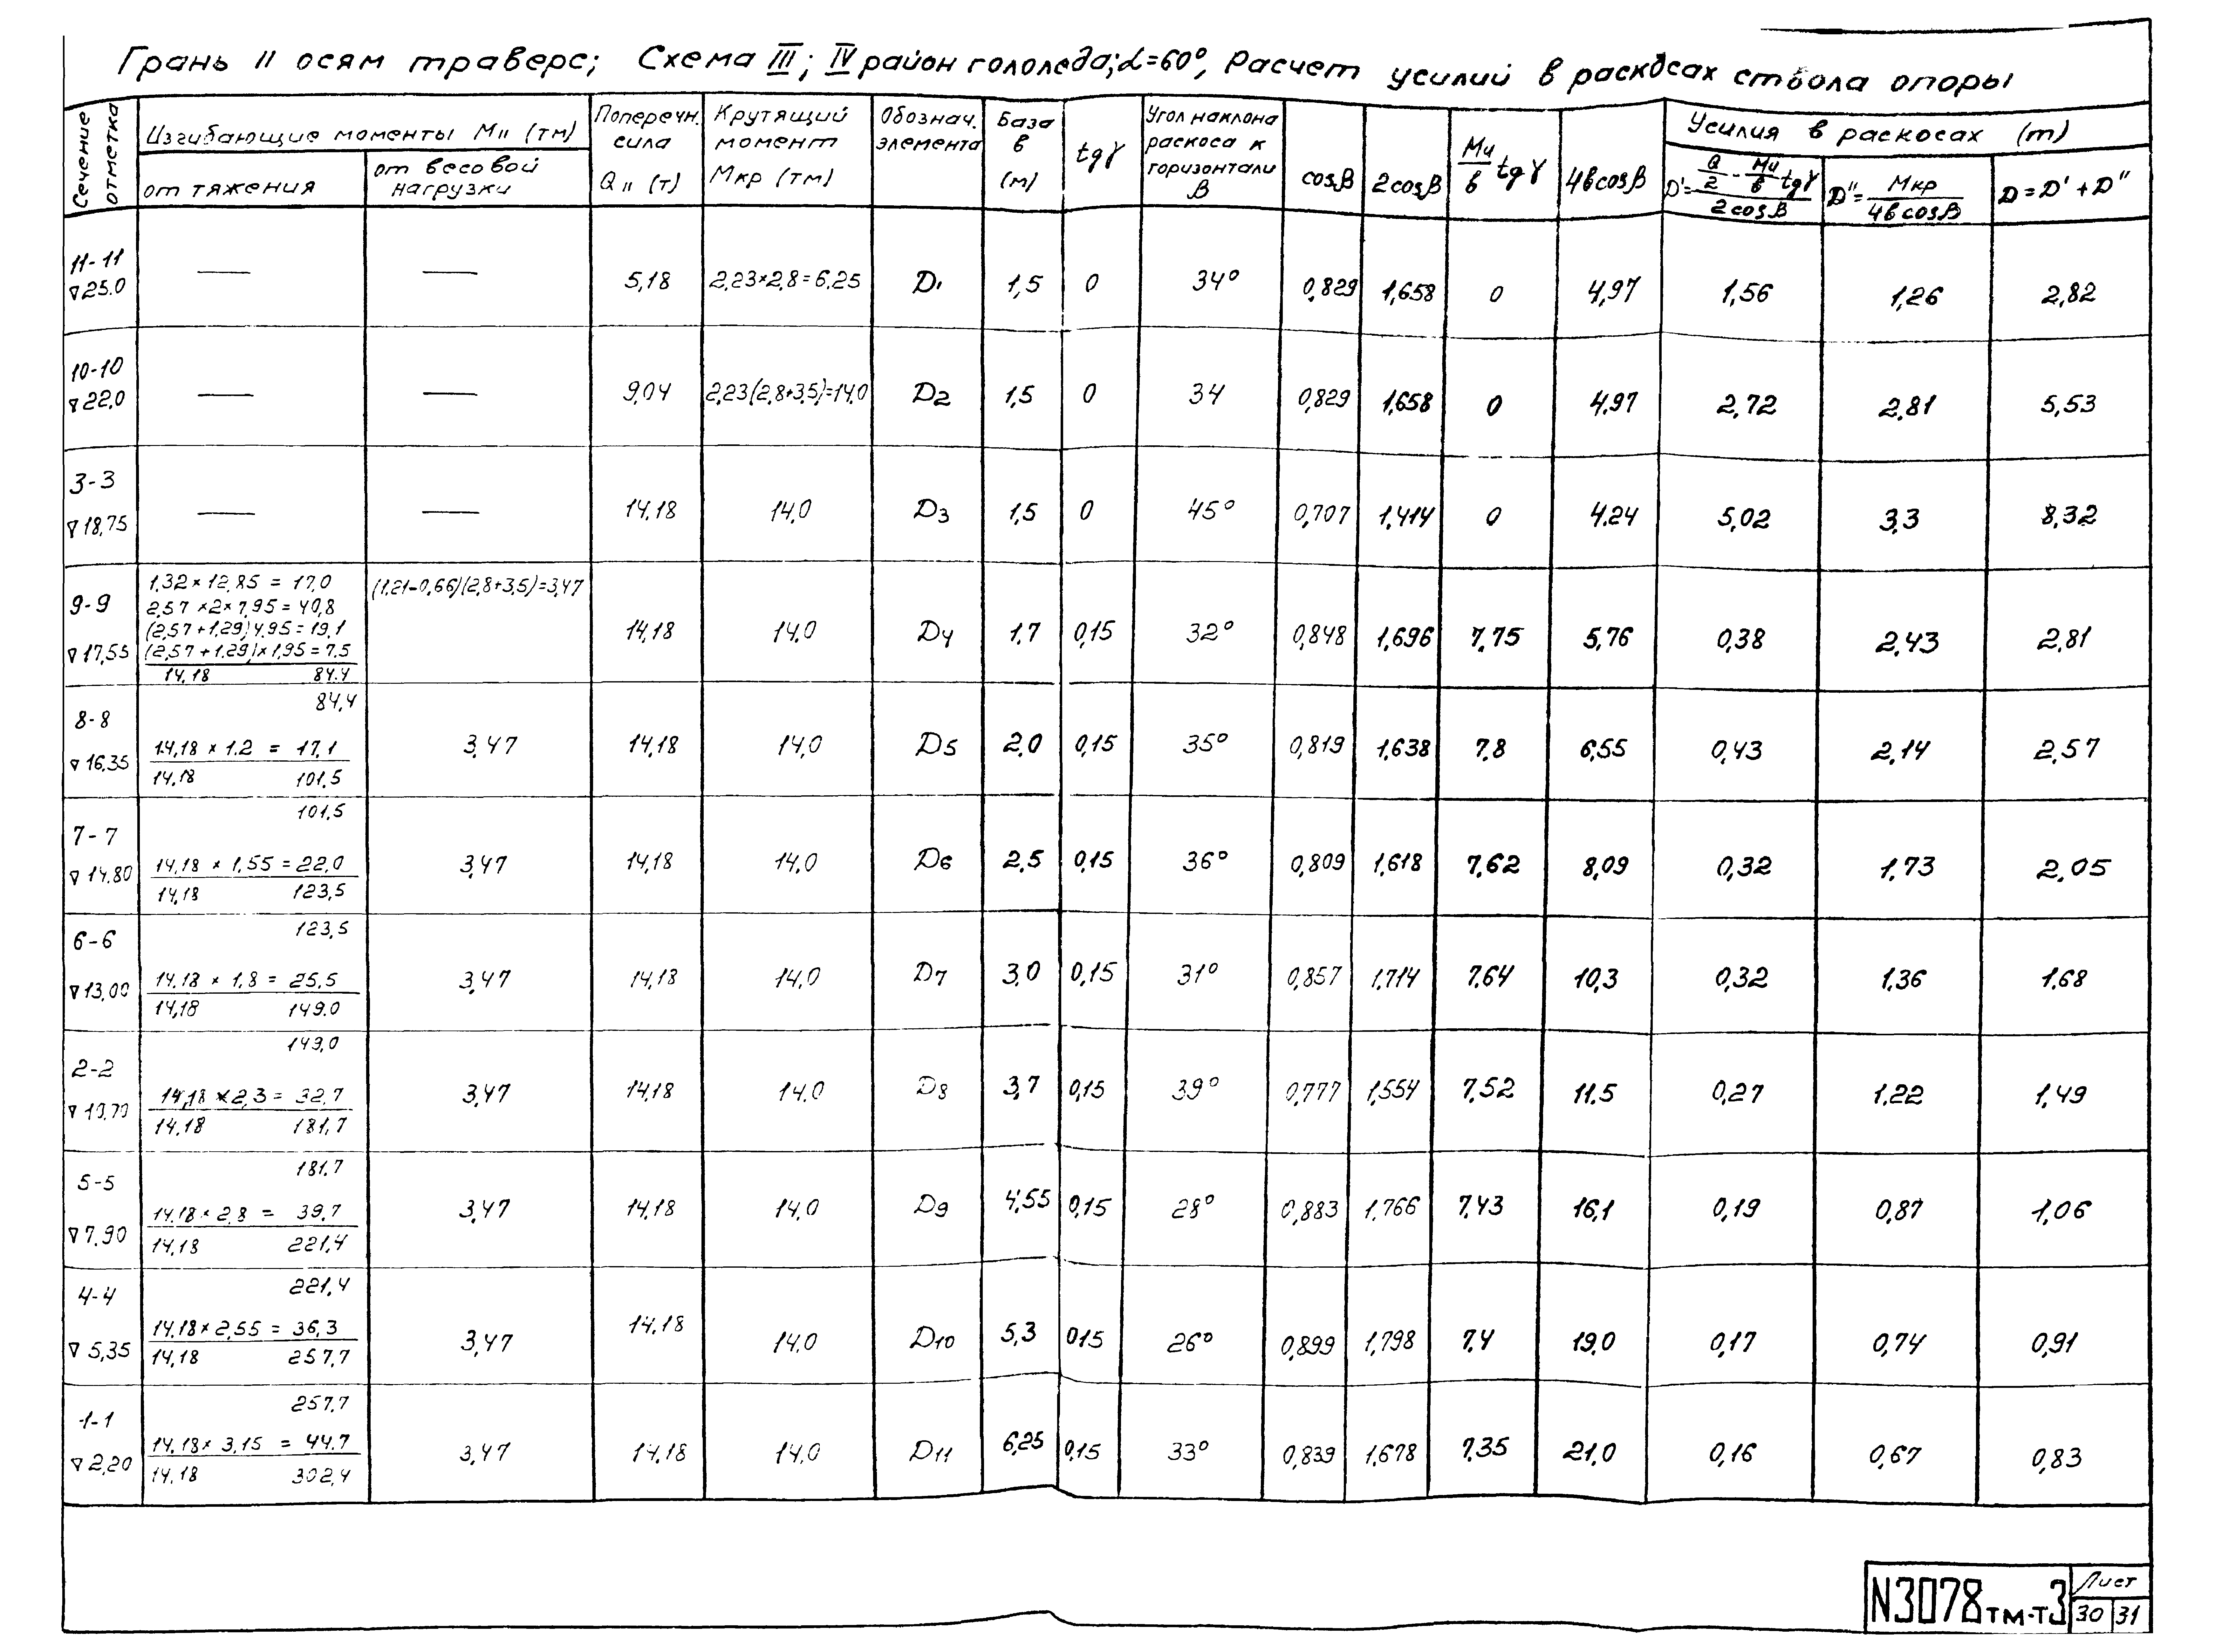 Грань II осям траверс; Схема III; IV район гололеда; α=60°, Расчет усилий в раскосах ствола опоры
Сечение отметка
Изгибающие моменты M II (тм)
от тяжения
от весовой нагрузки
Поперечн. сила Q II (т)
Крутящий момент Мкр (тм)
Обознач. элемента
База в (м)
tgγ
Угол наклона раскоса к горизонтали β
cosβ
2cosβ
Mи/в tgγ
4вcosβ
Усилия в раскосах (т)
D'= (Q/2 - Mи/в tgγ)/2cosβ
D''= Мкр/4вcosβ
D=D'+D''
11-11 ∇25.0 — — 5,18 2,23×2,8=6.25 D1 1,5 0 34° 0,829 1,658 0 4,97 1,56 1,26 2,82
10-10 ∇22,0 — — 9,04 2,23(2,8+3,5)=14,0 D2 1,5 0 34 0,829 1,658 0 4.97 2,72 2,81 5,53
3-3 ∇18,75 — — 14,18 14,0 D3 1,5 0 45° 0,707 1,414 0 4.24 5,02 3,3 8,32
1,32×12,85=17,0
9-9
2,57×2×7,95=40,8
(2,57+1,29)4,95=19,1
∇17,55
(2,57+1.29)×1,95=7.5
14,18 84.4
(1.21-0,66)(2,8+3,5)=3,47
14,18 14.0 D4 1.7 0,15 32° 0,848 1,696 7,75 5,76 0,38 2,43 2,81
84,4
8-8
∇16,35
14,18×1.2=17,1
14,18 101,5
3,47 14,18 14,0 D5 2,0 0,15 35° 0,819 1,638 7,8 6,55 0,43 2,14 2,57
101,5
7-7
∇14,80
14,18×1,55=22,0
14,18 123,5
3,47 14,18 14,0 D6 2,5 0,15 36° 0,809 1,618 7,62 8,09 0,32 1,73 2,05
123,5
6-6
∇13,00
14,18×1,8=25,5
14,18 149.0
3,47 14,18 14,0 D7 3,0 0,15 31° 0,857 1,714 7,64 10,3 0,32 1,36 1.68
149,0
2-2
∇10,70
14,18×2,3=32,7
14,18 181,7
3,47 14,18 14,0 D8 3,7 0,15 39° 0,777 1,554 7,52 11.5 0,27 1.22 1,49
181,7
5-5
∇7,90
14,18×2,8=39,7
14,18 221,4
3,47 14,18 14,0 D9 4,55 0,15 28° 0,883 1,766 7,43 16,1 0,19 0,87 1,06
221,4
4-4
∇5,35
14,18×2,55=36,3
14,18 257,7
3,47 14,18 14,0 D10 5,3 015 26° 0,899 1,798 7,4 19,0 0,17 0,74 0,91
257,7
1-1
∇2,20
14,18×3,15=44.7
14,18 302,4
3,47 14,18 14,0 D11 6,25 0,15 33° 0,839 1,678 7,35 21,0 0,16 0,67 0,83
N3078тм-т3
Лист
30 31